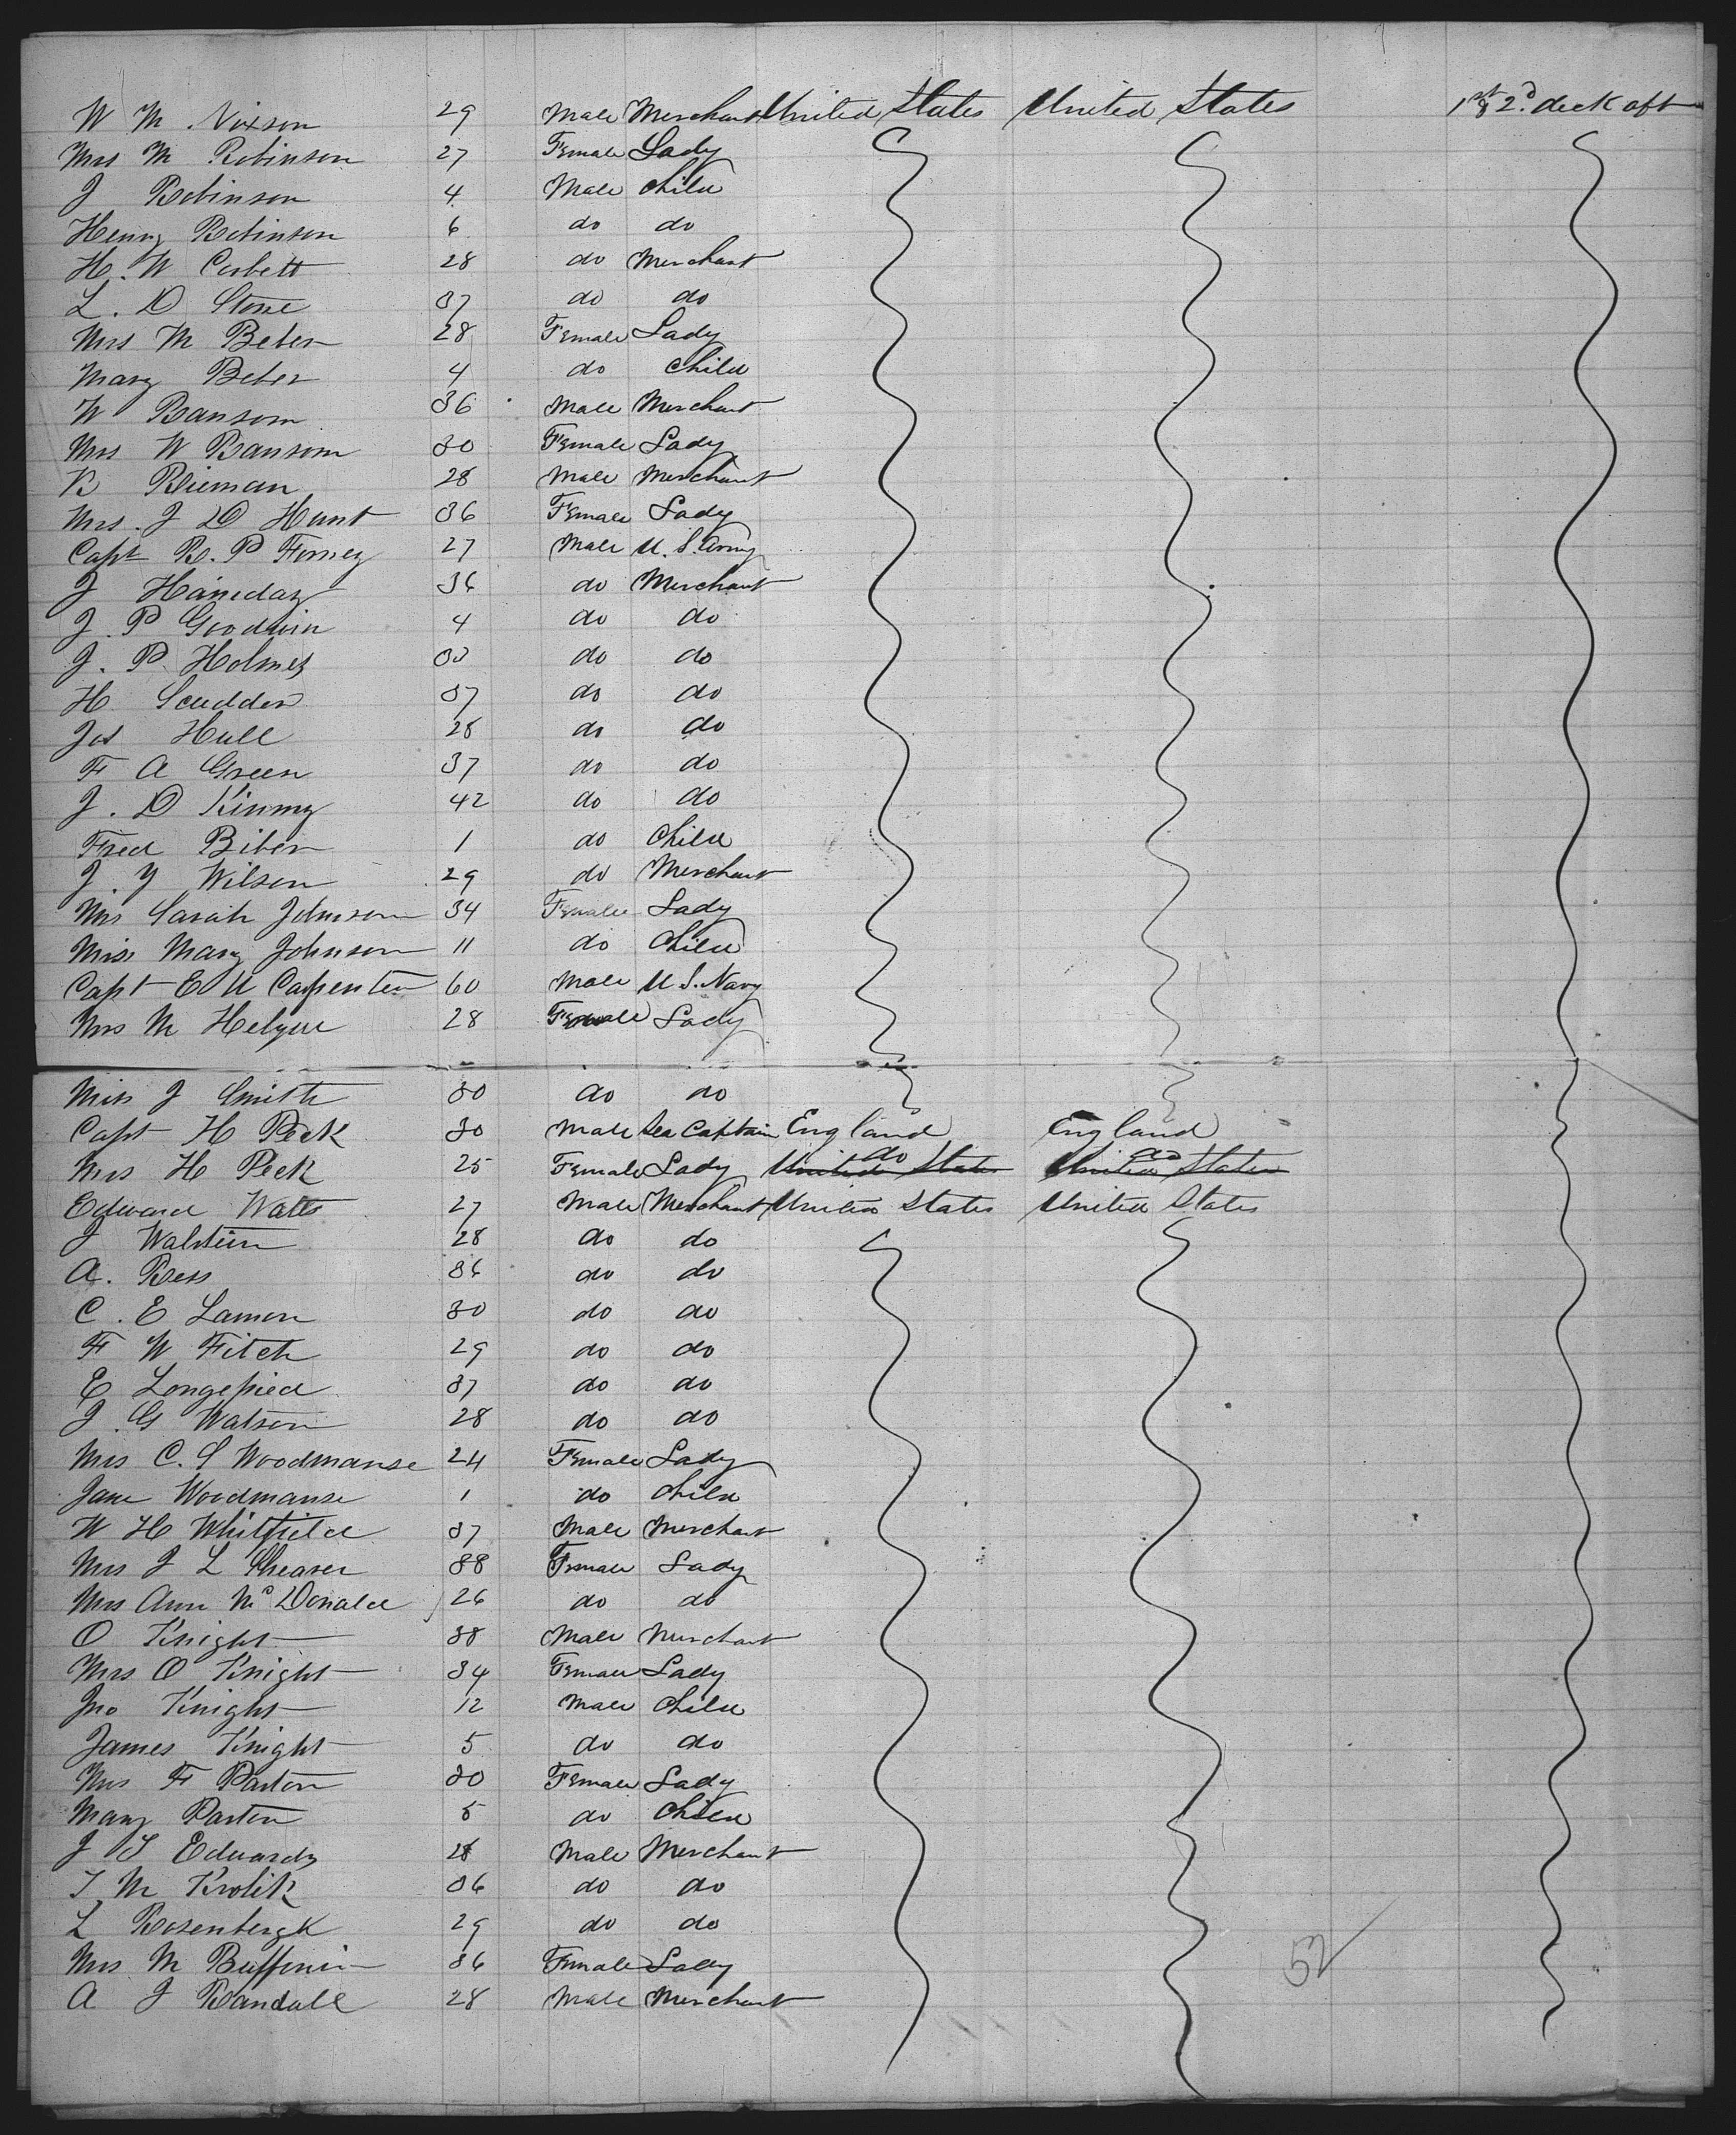 W M Nixson 29 Male Merchant United States United States 1st & 2d deck aft
Mrs M Robinson 27 Female Lady
J Robinson 4 Male Child
Henry Robinson 6 do do
H. W Corbett 28 do Merchant
L. D Stone 37 do do
Mrs M Beber 28 Female Lady
Mary Beber 4 do Child
W Ransom 36 Male Merchant
Mrs W Ransom 30 Female Lady
B Rieman 28 Male Merchant
Mrs. J D Hunt 36 Female Lady
Capt R. P Forney 27 Male U. S. Army
J Haneday 36 do Merchant
J. P Goodwin 4 do do
J. P. Holmes 30 do do
H Scudder 37 do do
Jos Hull 28 do do
F A Green 37 do do
J. D Kinmy 42 do do
Fred Biber 1 do Child
J. Y Wilson 29 do Merchant
Mrs Sarah Johnson 34 Female Lady
Miss Mary Johnson 11 do Child
Capt E U Carpenter 60 Male U. S. Navy
Mrs M Helyer 28 Female Lady
Miss J Smith 30 do do
Capt H Peck 30 Male Sea Captain England England
Mrs H Peck 25 Female Lady United States do United States do
Edward Watts 27 Male Merchant United States United States
J Walstein 28 do do
A. Ress 36 do do
C. E Lamon 30 do do
F W Fitch 29 do do
E Longepied 37 do do
J. G Watson 28 do do
Mrs C. S Woodmanse 24 Female Lady
Jane Woodmanse 1 do Child
W H Whitfield 37 Male Merchant
Mrs J L Shearer 38 Female Lady
Mrs Ann McDonald 26 do do
O Knight 38 Male Merchant
Mrs O Knight 34 Female Lady
Jno Knight 12 Male Child
James Knight 5 do do
Mrs F Parton 30 Female Lady
Mary Parton 5 do Child
J S Edwards 28 Male Merchant
T M Krolik 36 do do
L Rosenbergk 29 do do
Mrs M 36 Female Lady
A J Randall 28 Male Merchant
52